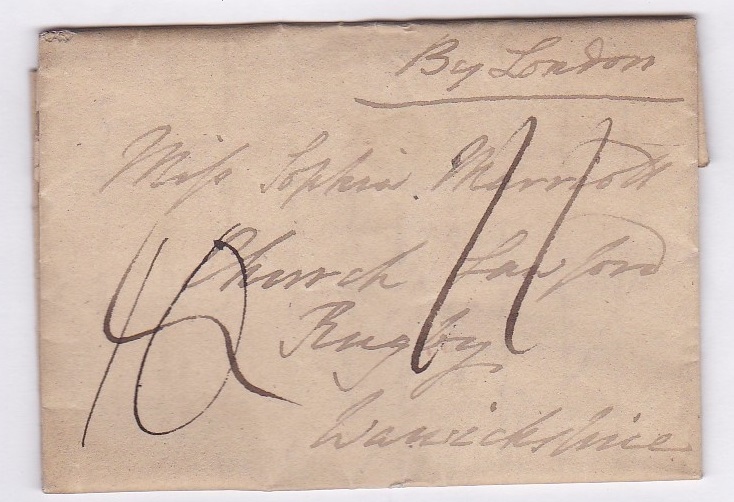 By London
Miſs Sophia Marriott
Church Lawford
Rugby
Warwickshire
11